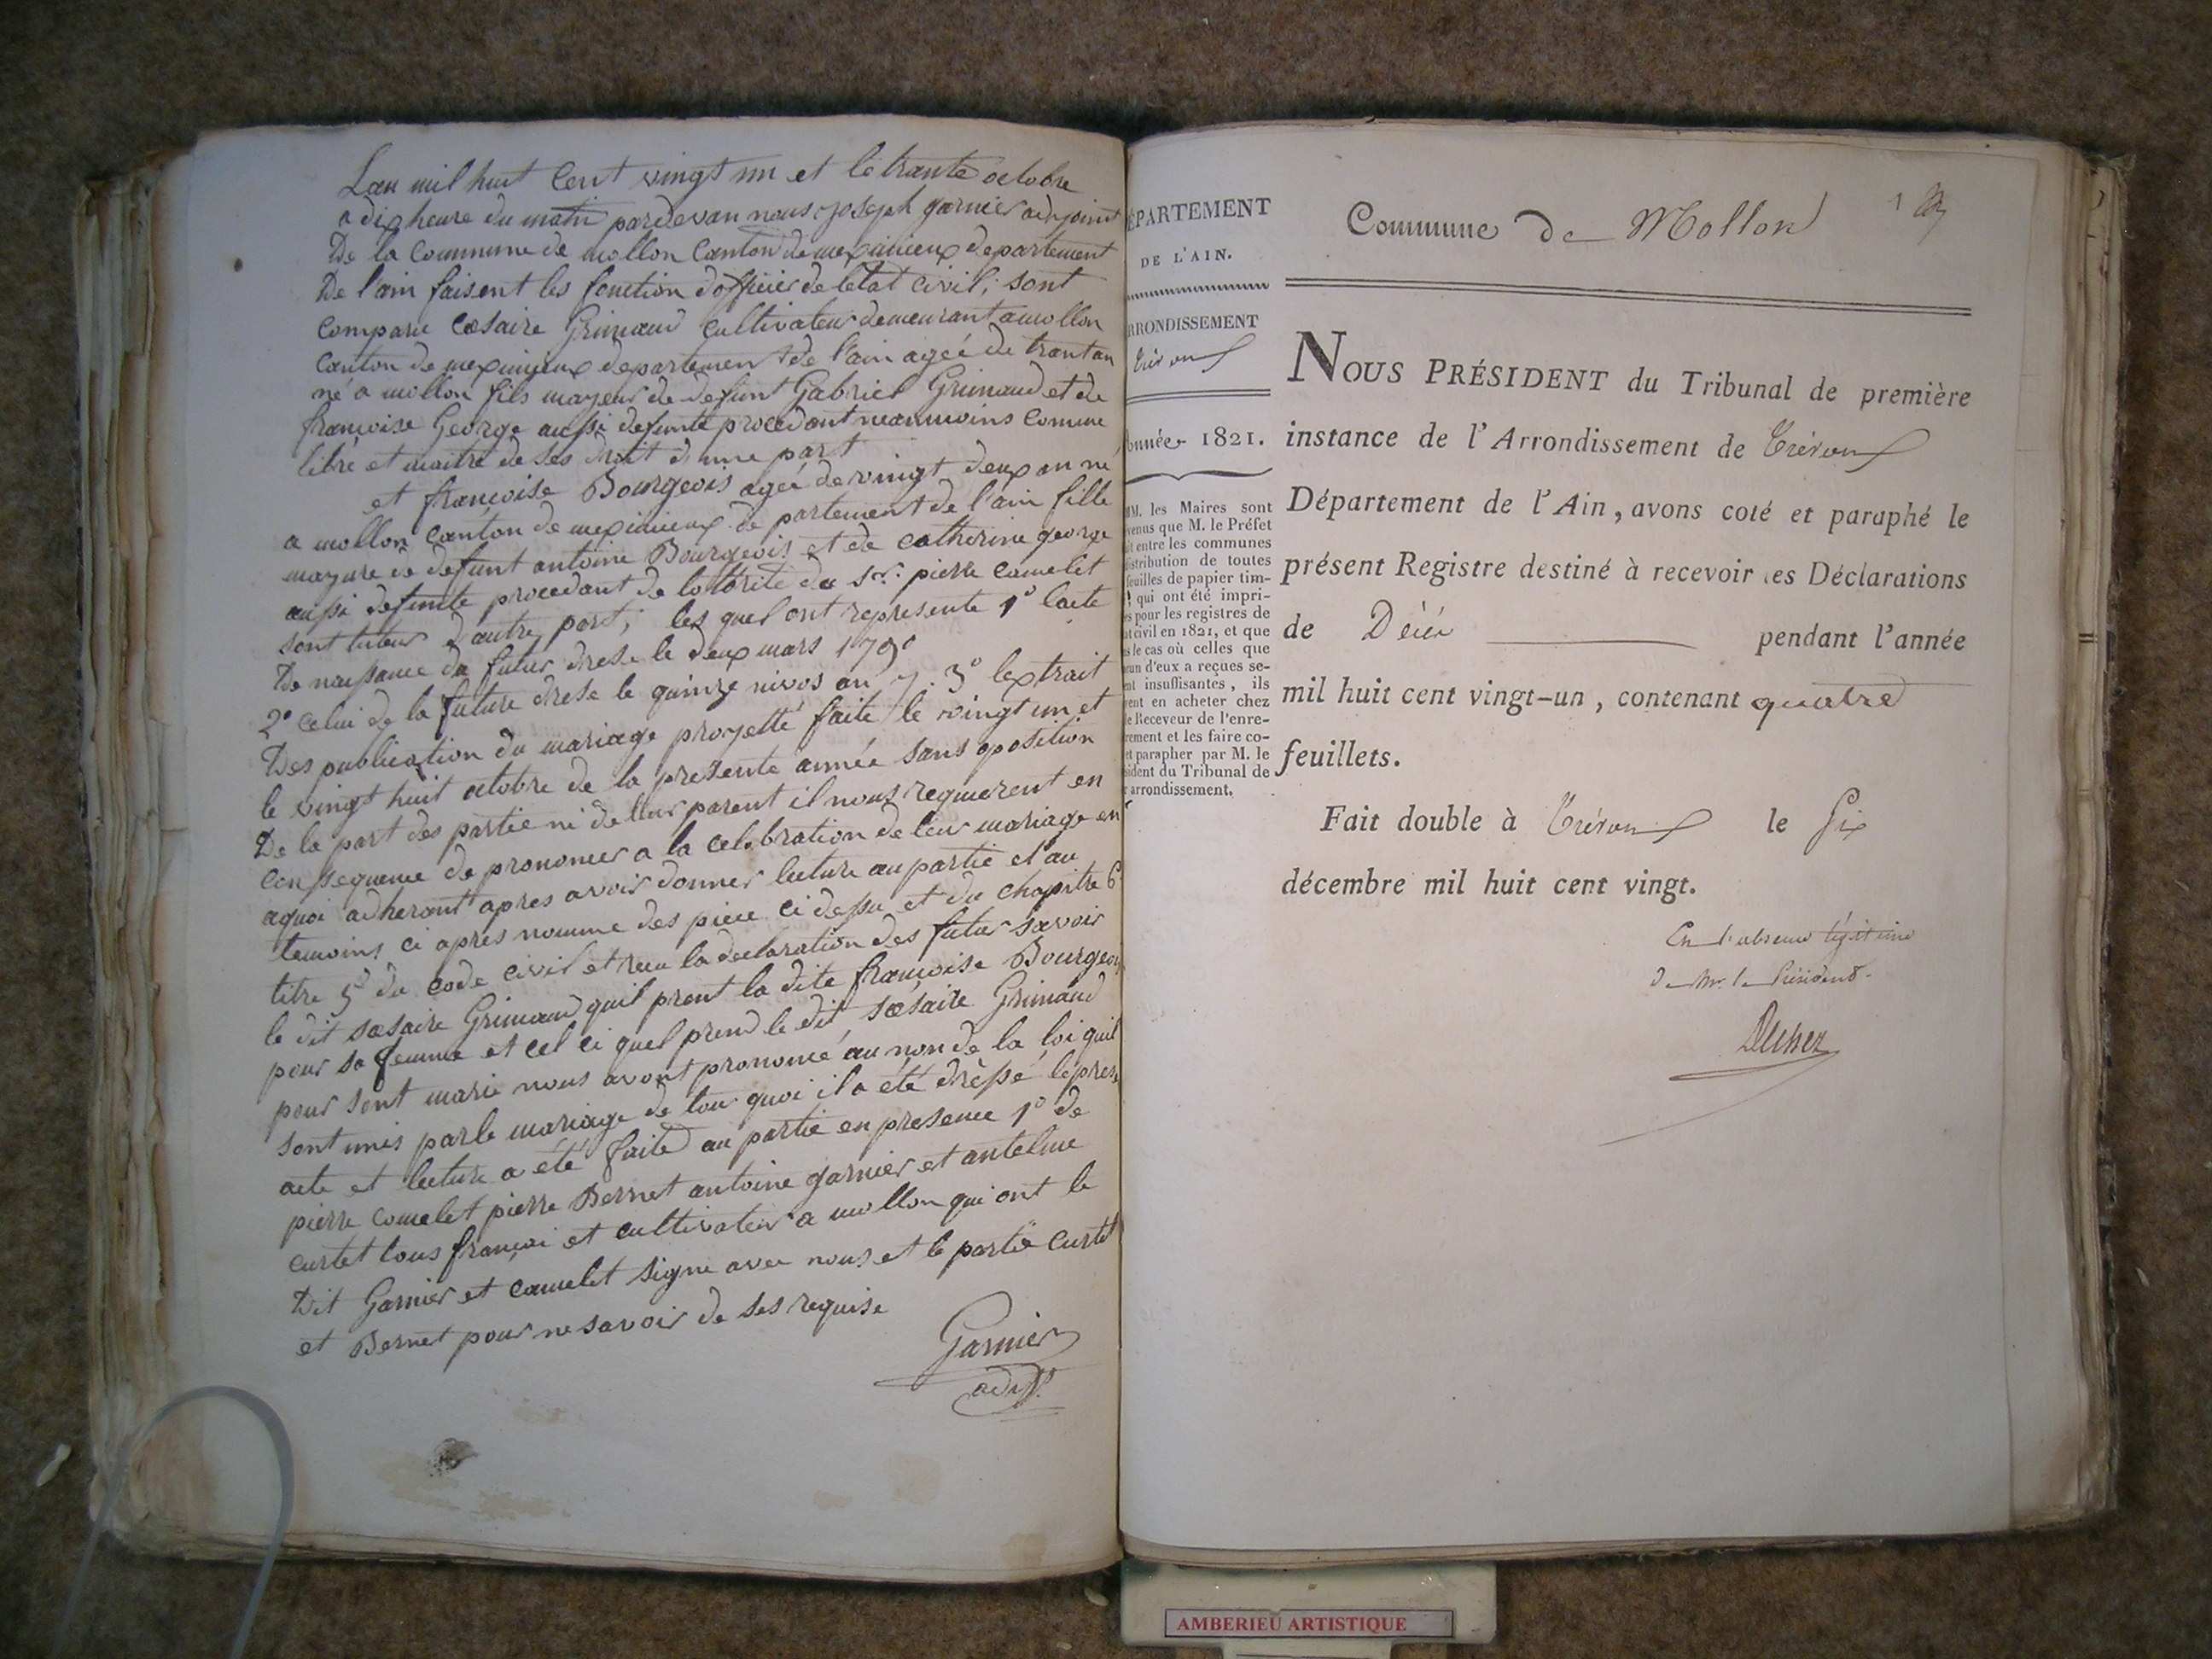 Lan mil huit Cent vingt un et le trante octobre
a dix heure du matin pardevan nous joseph garnier adjoint
De la Commune de mollon Canton de meximieux departement
De l'ain faisent les fonction dofficier de letat civil, sont
comparu Cæsaire Grimaud cultivateur demeurant a mollon
canton de meximieux departement de l'ain ageé de trant an
né a mollon fils mayeur de defunt Gabriel Grimaud et de
francoise George aussi defunte procedant neanmoins comme
libre et maitre de ses droit d'une part
et francoise Bourgeois ageé de vingt deux an né
a mollon canton de meximieux departement de l'ain fille
mayure de defunt antoine Bourgeois et de catherine george
aussi defunte procedant de lottorité du sr. pierre camelet
sont tuteur d'autre part, les quel ont represente 1º lacte
De naissance du futur drese le deux mars 1790
2º celui de la future drese le quinze nivos an 7. 3º lextrait
Des publication du mariage proyetté faite le vingt un et
le vingt huit octobre de la presente année sans oposition
De la part des partie ni de leur parent il nous requierent en
consequence de prononcer a la celebration de leur mariage en
aquoi adherant apres avoir donner lecture au partie et au
temoins ci apres nomme des piece ci dessu et du chapitre 6
titre 5º du code civil et recu la declaration des futur savoir
le dit sæsaire Grimaud quil prent la dite francoise Bourgeois
pour sa femme et cel ci quel prend le dit sæsaire Grimaud
pour sont marie nous avont prononcé au non de la loi quil
sont unis par le mariage de tou quoi il a été dressé le prese
acte et lecture a été faite au partie en presence 1º de
pierre camelet pierre Bernet antoine garnier et antelme
curtet tous françai et cultivateur a mollon qui ont le
Dit Garnier et camelet signe avec nous et le partie curtet
et Bernet pour ne savoir de ses requise
Garnier
adjt.
ÉPARTEMENT
DE L'AIN.
RRONDISSEMENT
Trévoux
Année 1821.
MM. les Maires sont
venus que M. le Préfet
it entre les communes
istribution de toutes
feuilles de papier tim-
qui ont été impri-
s pour les registres de
t civil en 1821, et que
s le cas où celles que
cun d'eux a reçues se-
ent insuffisantes, ils
vent en acheter chez
e Receveur de l'enre-
rement et les faire co-
et parapher par M. le
sident du Tribunal de
r arrondissement.
Commune de Mollon
1
NOUS PRÉSIDENT du Tribunal de première
instance de l'Arrondissement de Trévoux
Département de l'Ain, avons coté et paraphé le
présent Registre destiné à recevoir les Déclarations
de Décès pendant l'année
mil huit cent vingt-un, contenant quatre
feuillets.
Fait double à Trévoux le Six
décembre mil huit cent vingt.
En l'absence légitime
de Mr. le Président.
AMBERIEU ARTISTIQUE